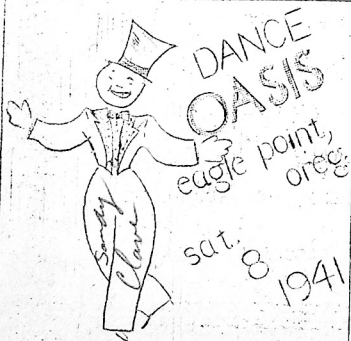 DANCE
OASIS
eagle point,
oreg.
sat.
8
1941
Sandy
Clave